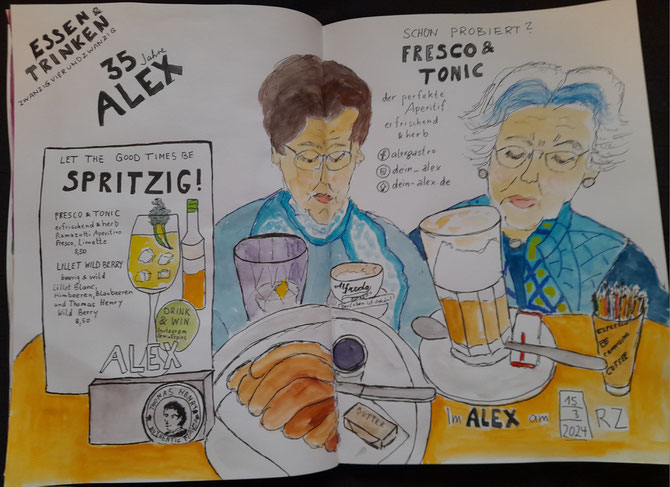 ESSEN &
TRINKEN
ZWANZIGVIERUNDZWANZIG
35 Jahre
ALEX
LET THE GOOD TIMES BE
SPRITZIG!
FRESCO & TONIC
erfrischend & herb
Ramazotti Aperitivo
Fresco, Limette
8,50
LILLET WILD BERRY
beerig & wild
Lillet Blanc,
Himbeeren, Blaubeeren
und Thomas Henry
Wild Berry
8,50
DRINK
& WIN
Instagram
Gewinnspiel
ALEX
THOMAS HENRY
SCHON PROBIERT?
FRESCO &
TONIC
der perfekte
Aperitif
erfrischend
& herb
alexgastro
dein_alex
dein-alex.de
Alfredo
BUTTER
COFFEE
Im ALEX am 15
3
2024
RZ